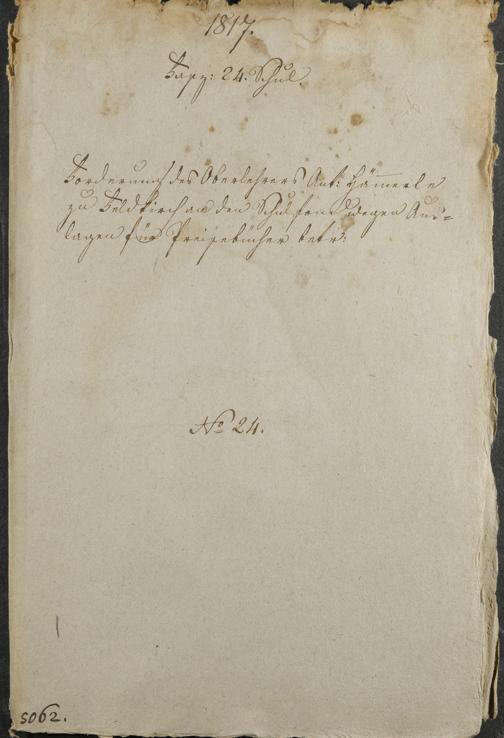 1817.
Fasz: 24. Schul.
Forderung des Oberlehrers Ant: Hämerle
zu Feldkirch an den Schulfond wegen Aus=
lagen für Preisebücher betr:
No 24.
5062.